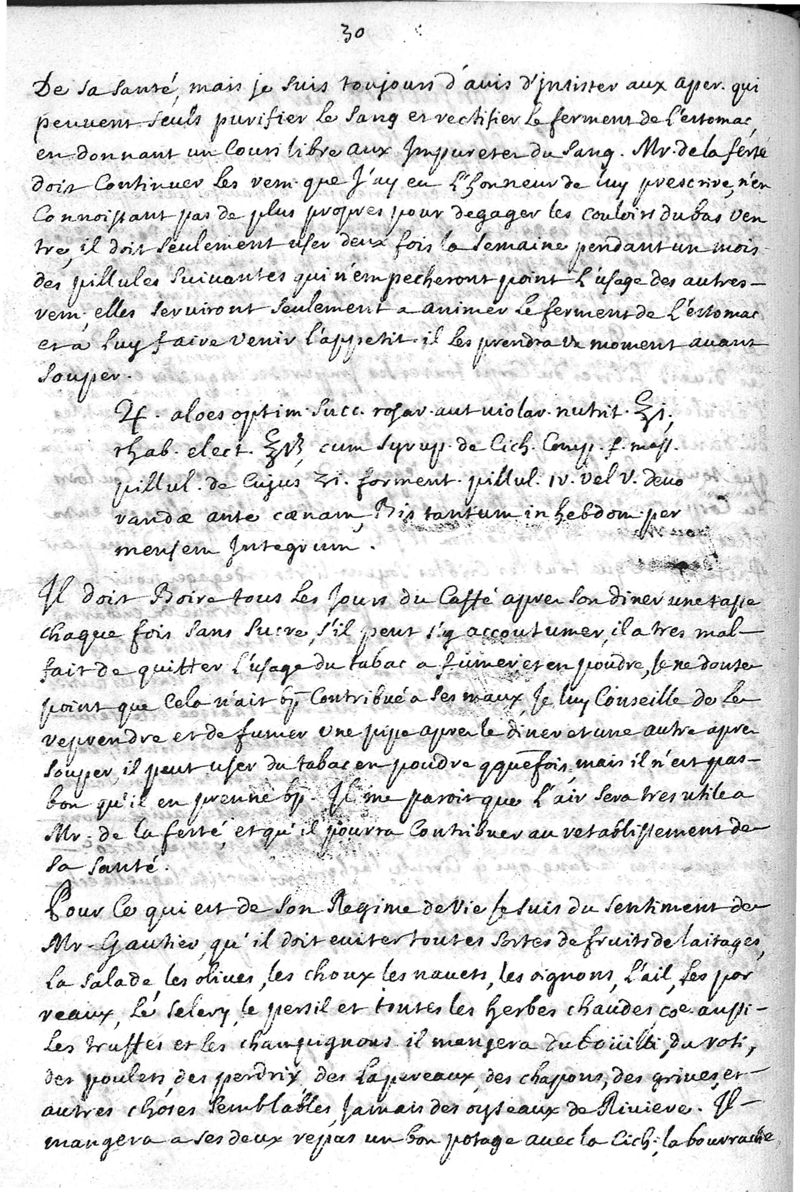 30
De sa santé, mais je suis toujours d'avis d'jnsister aux aper. qui
peuvent seuls purifier le sang et rectifier le ferment de l'estomac,
en donnant un Cours libre aux Jmpuretez du sang. Mr. de la ferté
doit Continuer les rem. que J'ay eu L'honneur de luy prescrire, n'en
Connoissant pas de plus propres pour degager les couloirs du bas ven
tre, il doit seulement user deux fois la semaine pendant un mois
des pillules suivantes qui n'empecheront point L'usage des autres-
rem. elles serviront seulement a animer le ferment de L'estomac
et a luy faire venir l'appetit. il les prendra un moment avant
souper.
♃. aloes optim. succ. rosar. aut violar. nutrit. ℥i,
rhab. elect. ℥ß, cum syrup. de Cich. Comp. f. mass.
pillul. de Cujus ʒi. forment. pillul. iv. vel v. devo
randæ ante cænam, Bis tantum in hebdom. per
mensem Jntegrum.
Jl doit Boire tous les Jours du Caffé apres son diner une tasse
chaque fois sans sucre, s'il peut s'y accoutumer, il a tres mal-
fait de quitter L'usage du tabac a fumer et en poudre, Je ne doute
point que Cela n'ait bp Contribué a ses maux, Je luy Conseille de le
reprendre et de fumer une pipe apres le diner et une autre apres
souper, il peut user du tabac en poudre qquefois, mais il n'est pas-
bon qu'il en prenne bp. Jl me paroit que L'air sera tres utile a
Mr. de la ferté, et qu'il pourra Contribuer au retablissement de
sa santé.
Pour Ce qui est de son Regime de Vie Je suis du sentiment de
Mr. Gautier, qu'il doit eviter toutes sortes de fruits de laitages,
La salade, les olives, les choux les navets, les oignons, L'ail, Les por
reaux, Le selery, le persil et toutes les herbes chaudes coe. aussi-
Les truffes et les champignons. il mangera du boüilli, du roti,
des poulets, des perdrix, des Lapereaux, des chapons, des grives, et-
autres choses semblables, Jamais des oyseaux de Riviere. Jl-
mangera a ses deux repas un bon potage avec la Cich., la bourrache,